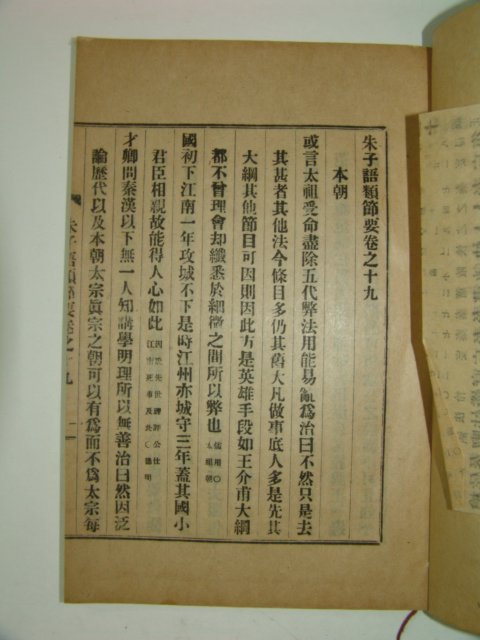 朱子語類節要卷之十九
本朝
或言太祖受命盡除五代弊法用能易亂爲治曰不然只是去
其甚者其他法令條目多仍其舊大凡做事底人多是先其
大綱其他節目可因則因此方是英雄手段如王介甫大綱
都不曾理會却纖悉於細微之間所以弊也 儒用○太祖朝
國初下江南一年攻城不下是時江州亦城守三年蓋其國小
君臣相親故能得人心如此
才卿問秦漢以下無一人知講學明理所以無善治曰然因泛
論歷代以及本朝太宗眞宗之朝可以有爲而不爲太宗每
朱子語類節要卷之十九